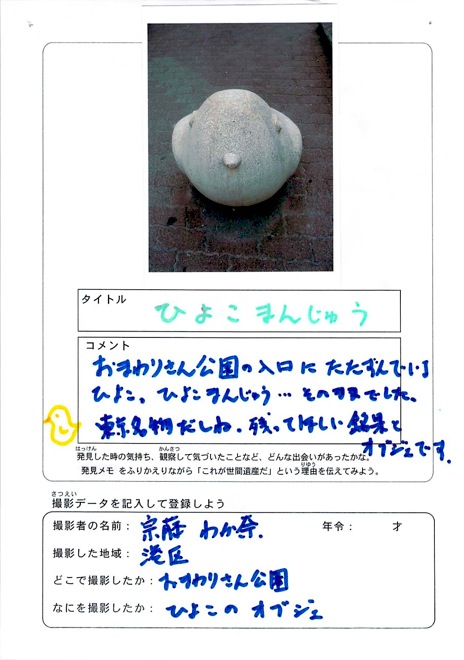 タイトル
ひよこまんじゅう
コメント
おまわりさん公園の入口にたたずんでいる
ひよこ。ひよこまんじゅう…そのままでした。
東京名物だしね。残ってほしい銘菓と
オブジェです。
はっけん かんさつ
発見した時の気持ち、観察して気づいたことなど、どんな出会いがあったかな。
りゆう
発見メモ をふりかえりながら「これが世間遺産だ」という理由を伝えてみよう。
さつえい
撮影データを記入して登録しよう
撮影者の名前： 宗藤 わか奈 年令： 才
撮影した地域： 港区
どこで撮影したか： おまわりさん公園
なにを撮影したか： ひよこのオブジェ